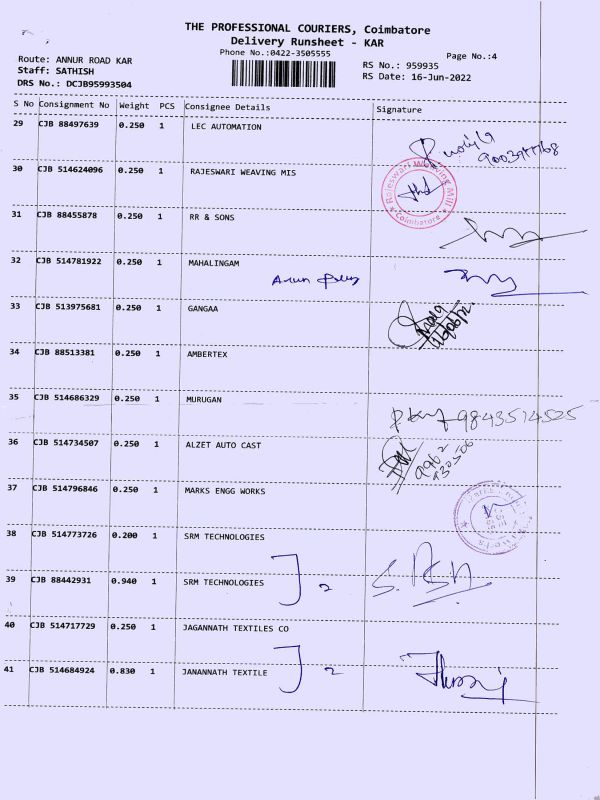 THE PROFESSIONAL COURIERS, Coimbatore
Delivery Runsheet - KAR
Phone No.:0422-3505555
Page No.:4
Route: ANNUR ROAD KAR
Staff: SATHISH
DRS No.: DCJB95993504
RS No.: 959935
RS Date: 16-Jun-2022
S No Consignment No Weight PCS Consignee Details Signature
29 CJB 88497639 0.250 1 LEC AUTOMATION
30 CJB 514624096 0.250 1 RAJESWARI WEAVING MIS
Rajeswari Weaving Mill
Coimbatore
31 CJB 88455878 0.250 1 RR & SONS
32 CJB 514781922 0.250 1 MAHALINGAM
Arun
33 CJB 513975681 0.250 1 GANGAA
34 CJB 88513381 0.250 1 AMBERTEX
35 CJB 514686329 0.250 1 MURUGAN
9843514525
36 CJB 514734507 0.250 1 ALZET AUTO CAST
37 CJB 514796846 0.250 1 MARKS ENGG WORKS
38 CJB 514773726 0.200 1 SRM TECHNOLOGIES
39 CJB 88442931 0.940 1 SRM TECHNOLOGIES
2
40 CJB 514717729 0.250 1 JAGANNATH TEXTILES CO
41 CJB 514684924 0.830 1 JANANNATH TEXTILE
2